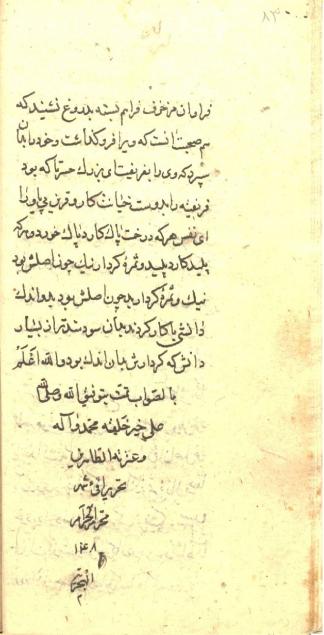 ۸۳
فرامان مزخرف فراهم نشسته بدروغ نشنید که
هم صحبت آنست که ویرا فروگذاشت و خود را بدان
سپرد که وی را بفریفت ای بزرگ حسرتا که بود
فریفته را بدوست خیانت کار و قرین بی وفا
ای نفس هر که درخت پاک کارد پاک خورد و هر که
پلید کارد پلید و ثمرهٔ کردار نیک چون اصلش بود
نیک و ثمرهٔ کردار بد چون اصلش بود بد و اندک
دانشی با کارکرد بدان سودمندتر از بسیار
دانش که کردارش بدان اندک بود والله اعلم
بالصواب تمت بتوفیق الله و صلی الله
علی خیر خلقه محمد و آله
و عترته الطاهرین
تحریرا فی شهر
محرم الحرام
۱۴۸